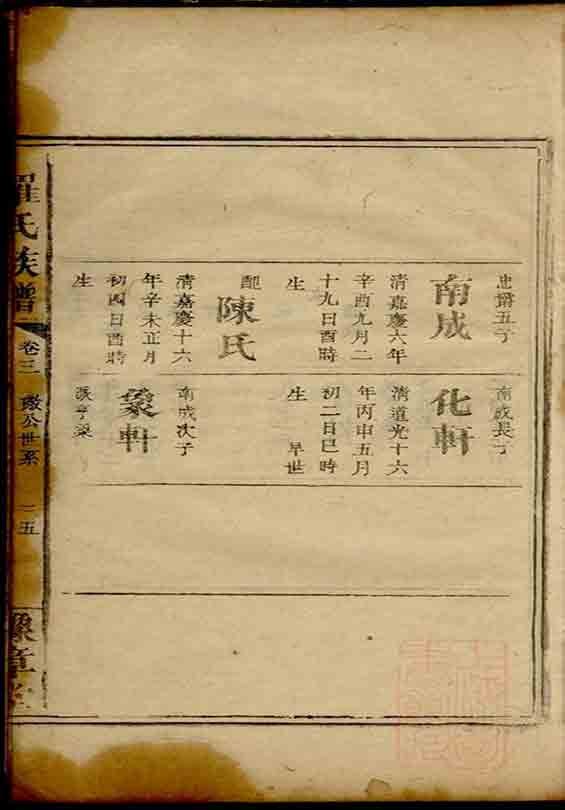 忠謨五子
南成
清嘉慶六年
辛酉九月二
十九日酉時
生
配
陳氏
清嘉慶十六
年辛未正月
初四日酉時
生
南成長子
化軒
清道光十六
年丙申五月
初二日巳時
生 早世
南成次子
象軒
羅氏族譜
卷三
公世系
一五
豫章堂